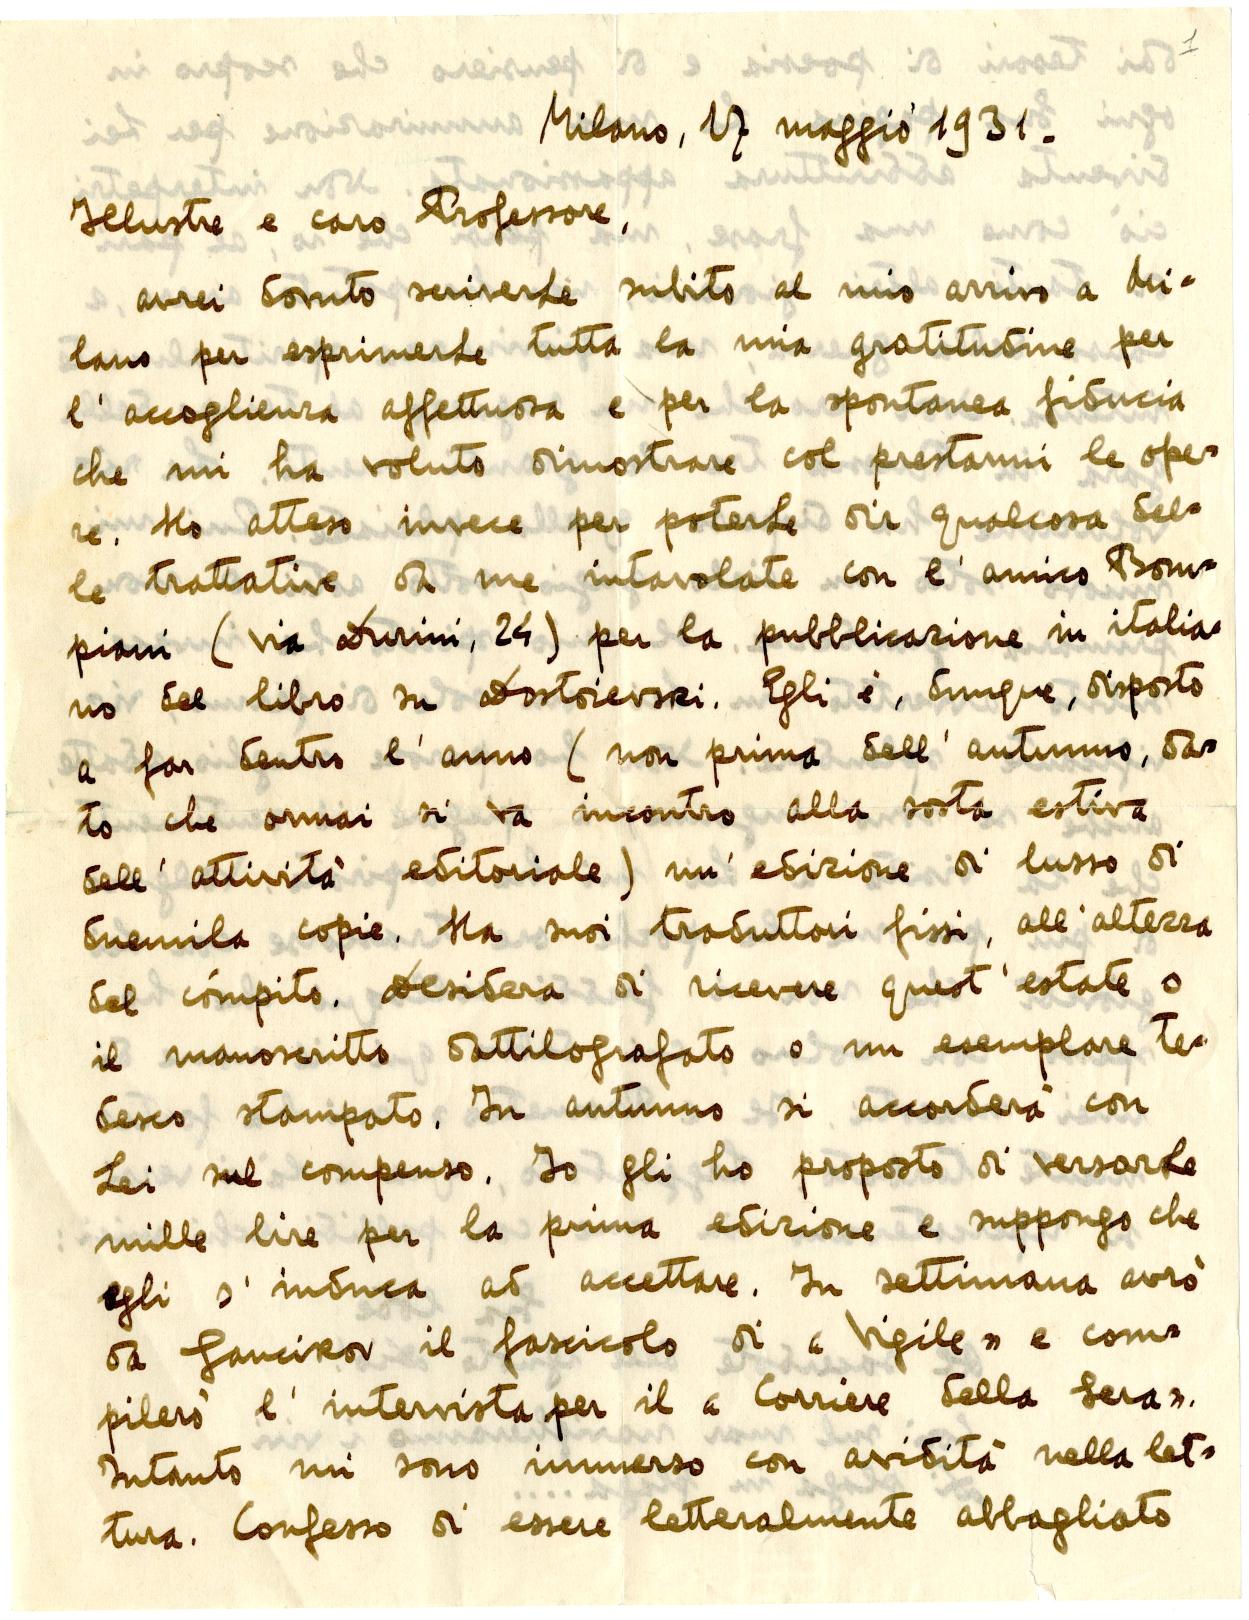 1
Milano, 17 maggio 1931.
Illustre e caro Professore,
avrei dovuto scriverLe subito al mio arrivo a Mi-
lano per esprimerLe tutta la mia gratitudine per
l'accoglienza affettuosa e per la spontanea fiducia
che mi ha voluto dimostrare col prestarmi le ope-
re. Ho atteso invece per poterLe dir qualcosa del-
le trattative da me intavolate con l'amico Bom-
piani (via Durini, 24) per la pubblicazione in italia-
no del libro su Dostoievski. Egli è, dunque, disposto
a far dentro l'anno (non prima dell'autunno, da-
to che ormai si va incontro alla sosta estiva
dell'attività editoriale) un'edizione di lusso di
duemila copie. Ha suoi traduttori fissi, all'altezza
del cómpito. Desidera di ricevere quest'estate o
il manoscritto dattilografato o un esemplare te-
desco stampato. In autunno si accorderà con
Lei sul compenso. Io gli ho proposto di versarLe
mille lire per la prima edizione e suppongo che
egli s'induca ad accettare. In settimana avrò
da Gancikov il fascicolo di «Vigile» e com-
pilerò l'intervista per il «Corriere della Sera».
Intanto mi sono immerso con avidità nella let-
tura. Confesso di essere letteralmente abbagliato